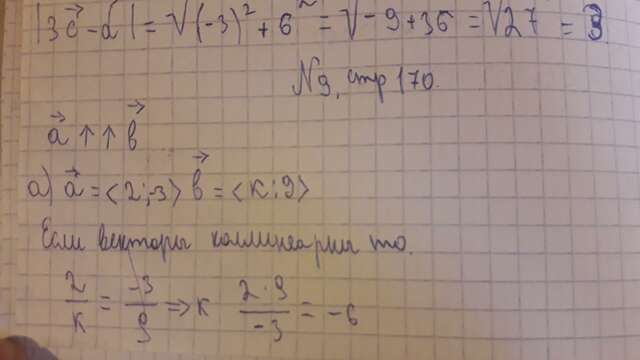 |3c⃗ - d⃗| = √(-3)² + 6² = √-9+36 = √27 = 3
N9, стр 170.
a⃗ ↑↑ b⃗
а) a⃗ = <2;-3> b⃗ = <к;9>
Если векторы коллинеарны то.
2/к = -3/9 ⇒ к 2·9/-3 = -6